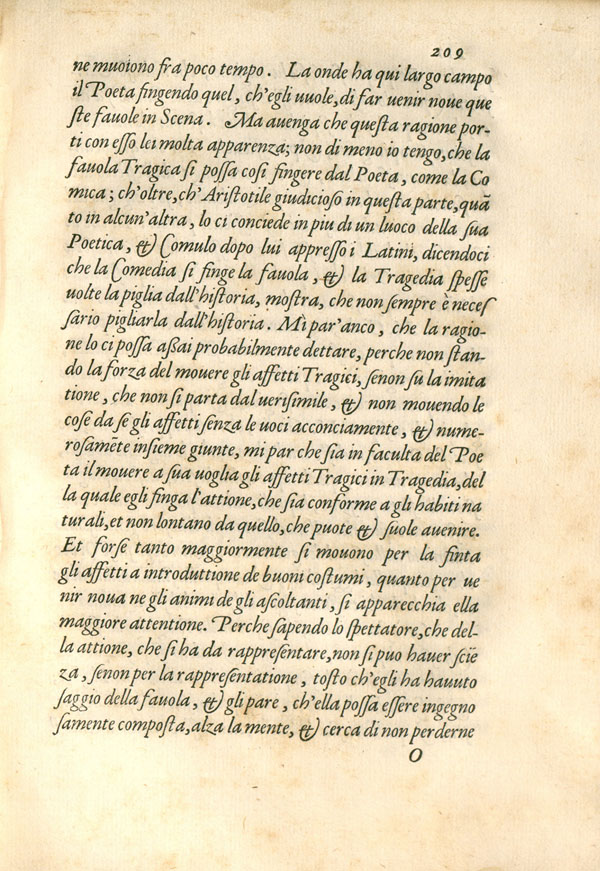 209
ne muoiono fra poco tempo. La onde ha qui largo campo
il Poeta fingendo quel, ch'egli uuole, di far uenir noue que
ste fauole in Scena. Ma auenga che questa ragione por-
ti con esso lei molta apparenza; non di meno io tengo, che la
fauola Tragica si possa cosi fingere dal Poeta, come la Co
mica; ch'oltre, ch'Aristotile giudicioso in questa parte, quā
to in alcun'altra, lo ci conciede in piu di un luoco della sua
Poetica, & Comulo dopo lui appresso i Latini, dicendoci
che la Comedia si finge la fauola, & la Tragedia spesse
uolte la piglia dall'historia, mostra, che non sempre è neces
sario pigliarla dall'historia. Mi par'anco, che la ragio-
ne lo ci possa assai probabilmente dettare, perche non stan-
do la forza del mouere gli affetti Tragici, senon su la imita
tione, che non si parta dal uerisimile, & non mouendo le
cose da se gli affetti senza le uoci acconciamente, & nume-
rosamēte insieme giunte, mi par che sia in faculta del Poe
ta il mouere a sua uoglia gli affetti Tragici in Tragedia, del
la quale egli finga l'attione, che sia conforme a gli habiti na
turali, et non lontano da quello, che puote & suole auenire.
Et forse tanto maggiormente si mouono per la finta
gli affetti a introduttione de buoni costumi, quanto per ue
nir noua ne gli animi de gli ascoltanti, si apparecchia ella
maggiore attentione. Perche sapendo lo spettatore, che del-
la attione, che si ha da rappresentare, non si puo hauer sciē
za, senon per la rappresentatione, tosto ch'egli ha hauuto
saggio della fauola, & gli pare, ch'ella possa essere ingegno
samente composta, alza la mente, & cerca di non perderne
O